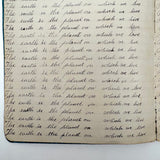 The earth is the planet on which we live
The earth is the planet on which we live
The earth is the planet on which we live
The earth is the planet on which we live
The earth is the planet on which we live
The earth is the planet on which we live
The earth is the planet on which we live
The earth is the planet on which we live
The earth is the planet on which we live
The earth is the planet on which we live
The earth is the planet on which we live
The earth is the planet on which we live
The earth is the planet on which we live